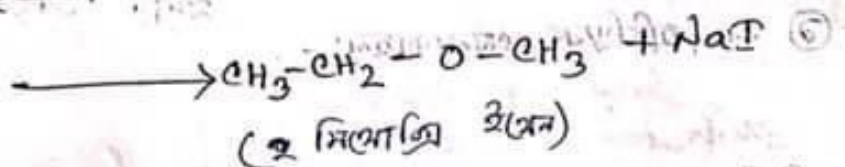 ⟶ CH₃-CH₂-O-CH₃ + NaI ⑥
(2 মিথোক্সি ইথেন)